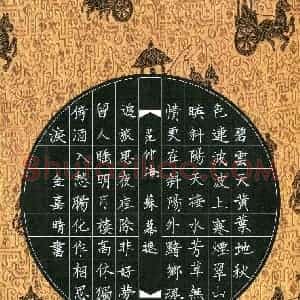 碧雲天黃葉地秋
色連波波上寒煙翠山
映斜陽天接水芳草無
情更在斜陽外黯鄉魂
范仲淹 蘇幕遮
追旅思夜夜除非好夢
留人睡明月樓高休獨
倚酒入愁腸化作相思
淚 嘉晴書